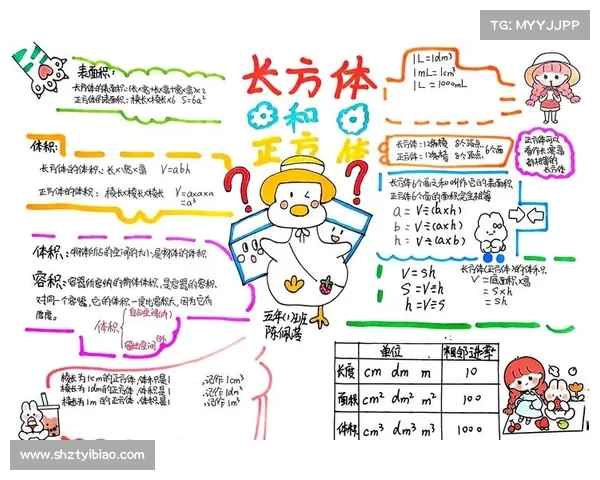 TG: MYYJJPP
长方体
和
正方体
表面积:
长方体的表面积:(长×宽+长×高+宽×高)×2
正方体的表面积:棱长×棱长×6 S=6a²
体积:
长方体的体积:长×宽×高 V=abh
正方体的体积:棱长×棱长×棱长 V=a×a×a
=a³
体积:物体所占的空间的大小,是物体的体积.
容积:容器所容纳的物体体积,是容器的容积.
对同一个容器,它的体积一定比容积大,因为它有
厚度。
体积
棱长为1cm的正方体,体积是1 记作1cm³
棱长为1dm的正方体,体积是1 记作1dm³
棱长为1m的正方体,体积是1 记作1m³
? ?
五年(1)班
1L=1dm³
1mL=1cm³
1L=1000mL
长方体:12条棱 8个顶点
正方体:12条棱 8个顶点
6个面
正方体可以
看作长宽高
都相等的
长方体
长方体6个面之和叫作它的表面积.
正方体6个面的面积完全相等
a=V÷(b×h)
b=V÷(a×h)
h=V÷(a×b)
V=sh
S=V÷h
h=V÷S
长方体(正方体)的体积
V=底面积×高
=S×h
=sh
单位 相邻进率
长度 cm dm m 10
面积 cm² dm² m² 100
体积 cm³ dm³ m³ 1000
www.shztyibiao.com